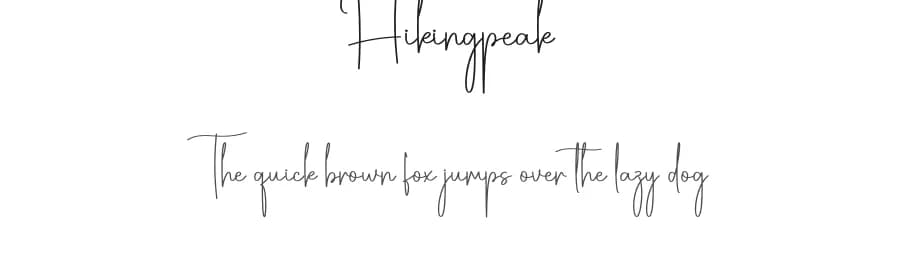 Hikingpeak
The quick brown fox jumps over the lazy dog